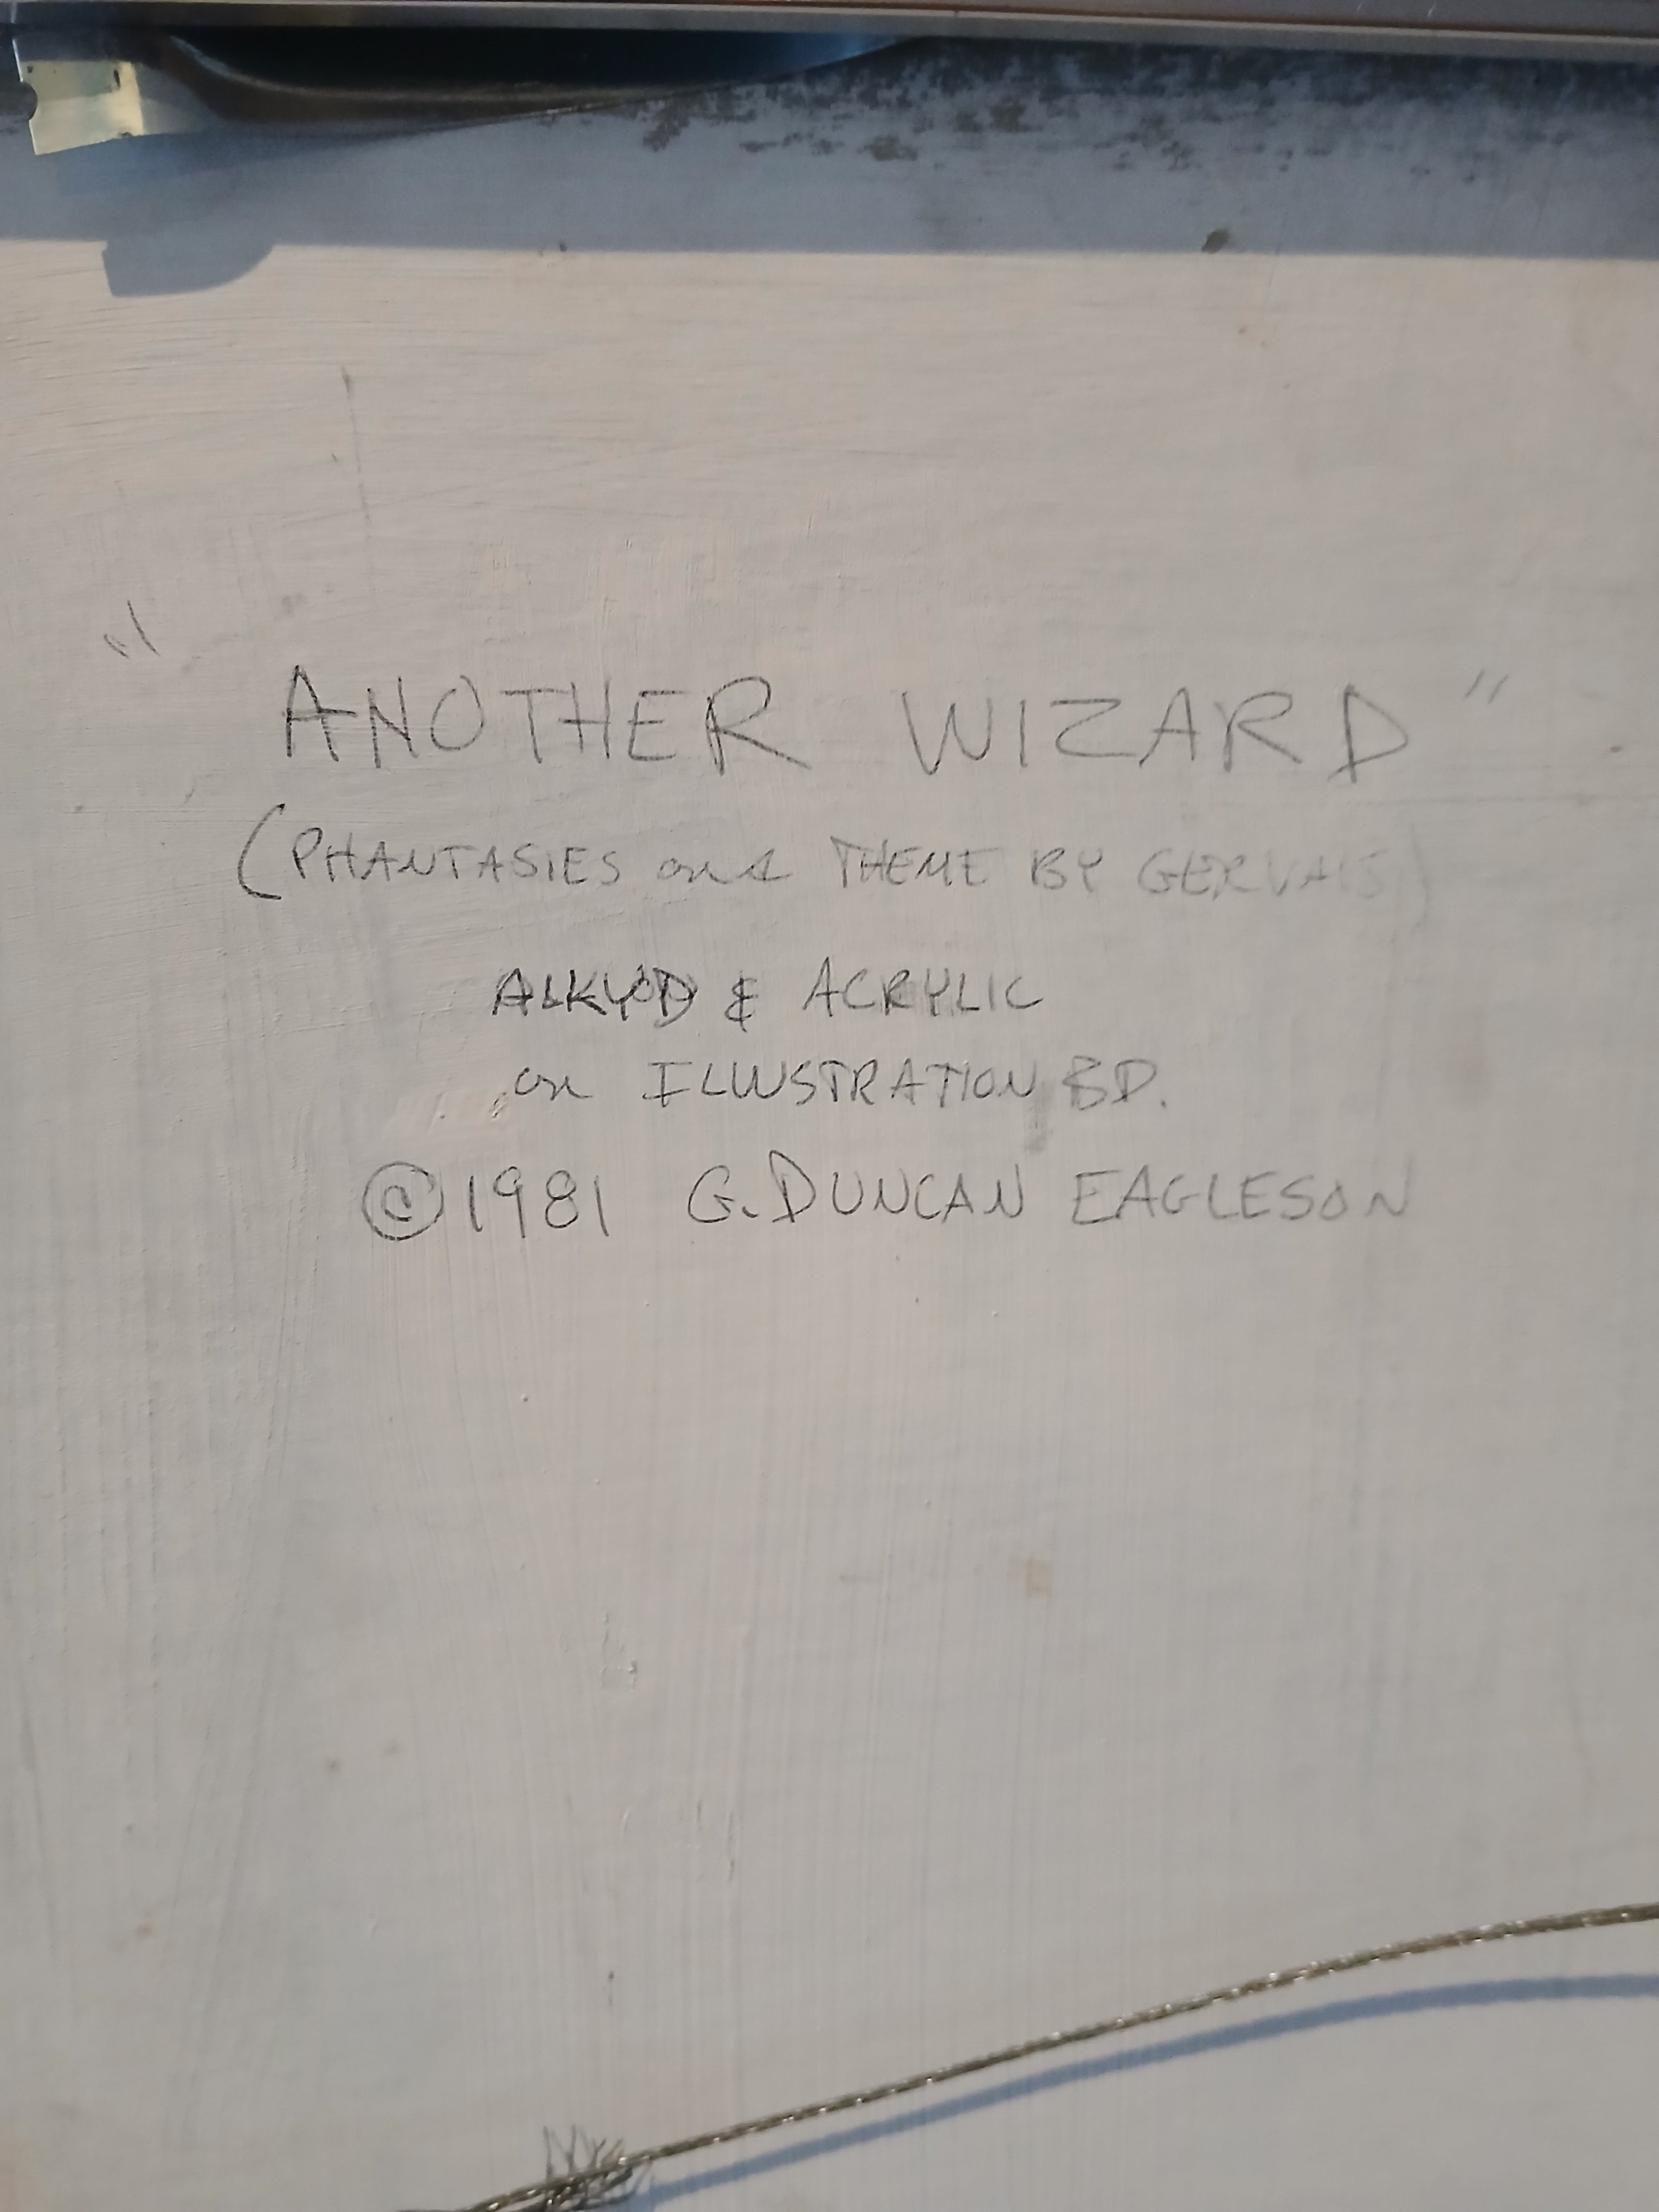 "ANOTHER WIZARD"
(PHANTASIES on a THEME BY GERVAIS)
ALKYD & ACRYLIC
on ILLUSTRATION BD.
©1981 G. DUNCAN EAGLESON